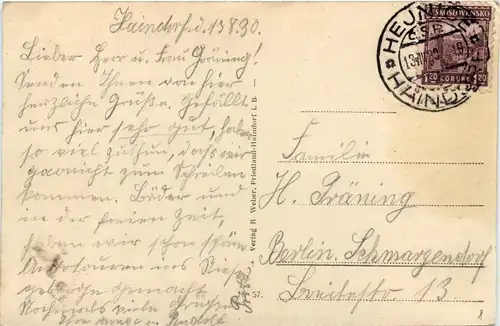 Haindorf d. 13.8.30.
Lieber Herr u. Frau Gräning!
Senden Ihnen von hier
herzliche Grüße. Gefällt
uns hier sehr gut, haben
so viel zutun, daß wir
garnicht zum Schreiben
kommen. Bäder und
in der freien Zeit,
haben wir schon schöne
Autotouren ins Riesen
gebirge gemacht
Nochmals viele Grüße
Rudolf
Verlag R. Weber, Friedland-Haindorf i. B.
57.
ČESKOSLOVENSKO
1·20 KORUNY 1·20
HEJNICE
ČSR
HAINDORF
Familie
H. Gräning
Berlin. Schmargendorf
Breitestr. 13.